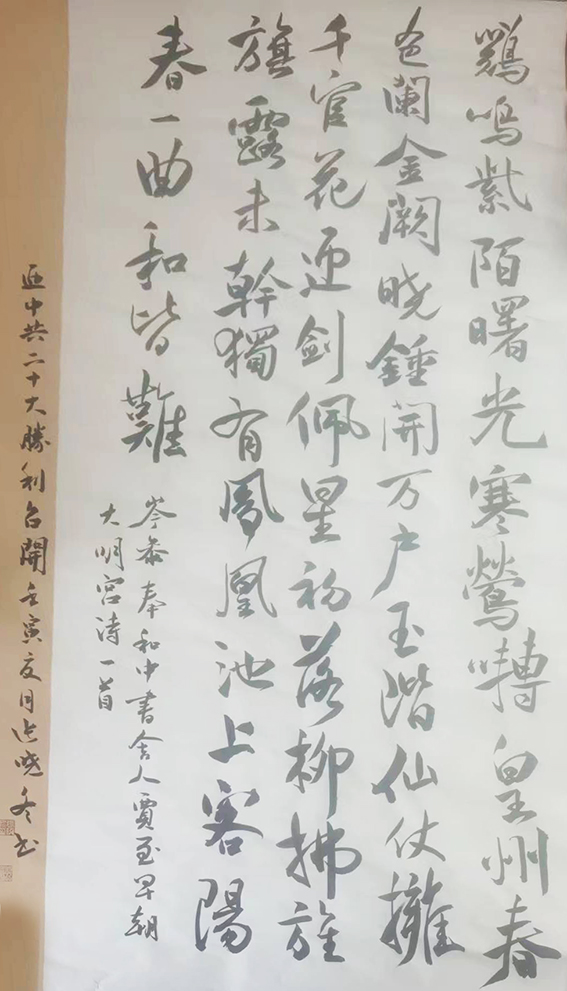 鷄鳴紫陌曙光寒鶯囀皇州春
色闌金阙晓鍾開万户玉階仙仗擁
千官花迎劍佩星初落柳拂旌
旗露未幹獨有鳳凰池上客陽
春一曲和皆難
岑參奉和中書舍人賈至早朝
大明宫诗一首
迎中共二十大勝利召開壬寅夏月 晓冬书